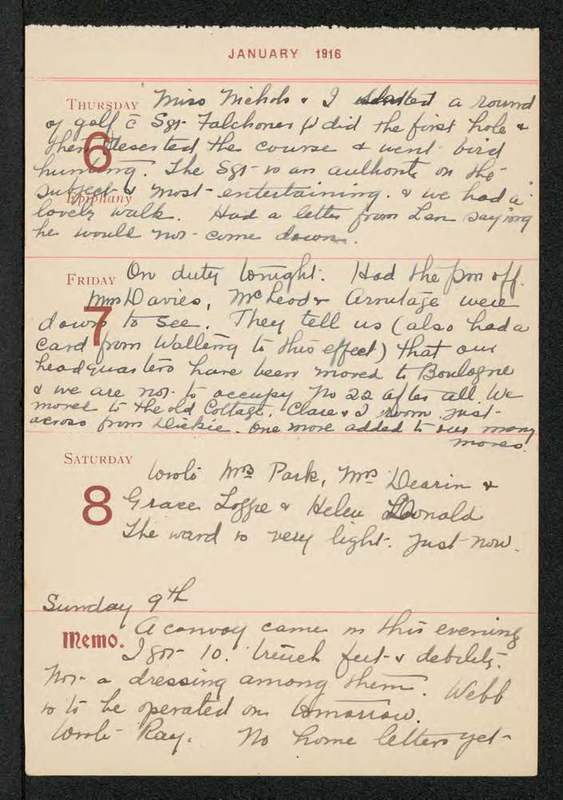 JANUARY 1916
THURSDAY Miss Nichols & I started a round
6
of golf c̄ Sgt. Falchoner & did the first hole &
then deserted the course & went bird
hunting. The Sgt. is an authority on the
Epiphany
subject & most entertaining. & we had a
lovely walk. Had a letter from Len saying
he would not come down.
FRIDAY On duty tonight. Had the pm off.
7
Mrs Davies, McLeod & Armitage were
down to see. They tell us (also had a
card from Walling to this effect) that our
headquarters have been moved to Boulogne
& we are not to occupy No 22 after all. We
moved to the old Cottage. Clare & I room just
across from Dickie. One more added to our many
moves.
SATURDAY
8
Wrote Mrs Park, Mrs Dearin &
Grace & Helen Donald
The ward is very light. Just now.
Sunday 9th
Memo. A convoy came in this evening
I got 10. trench feet & debility.
Not a dressing among them. Webb
is to be operated on tomorrow.
Wrote Ray. No home letters yet